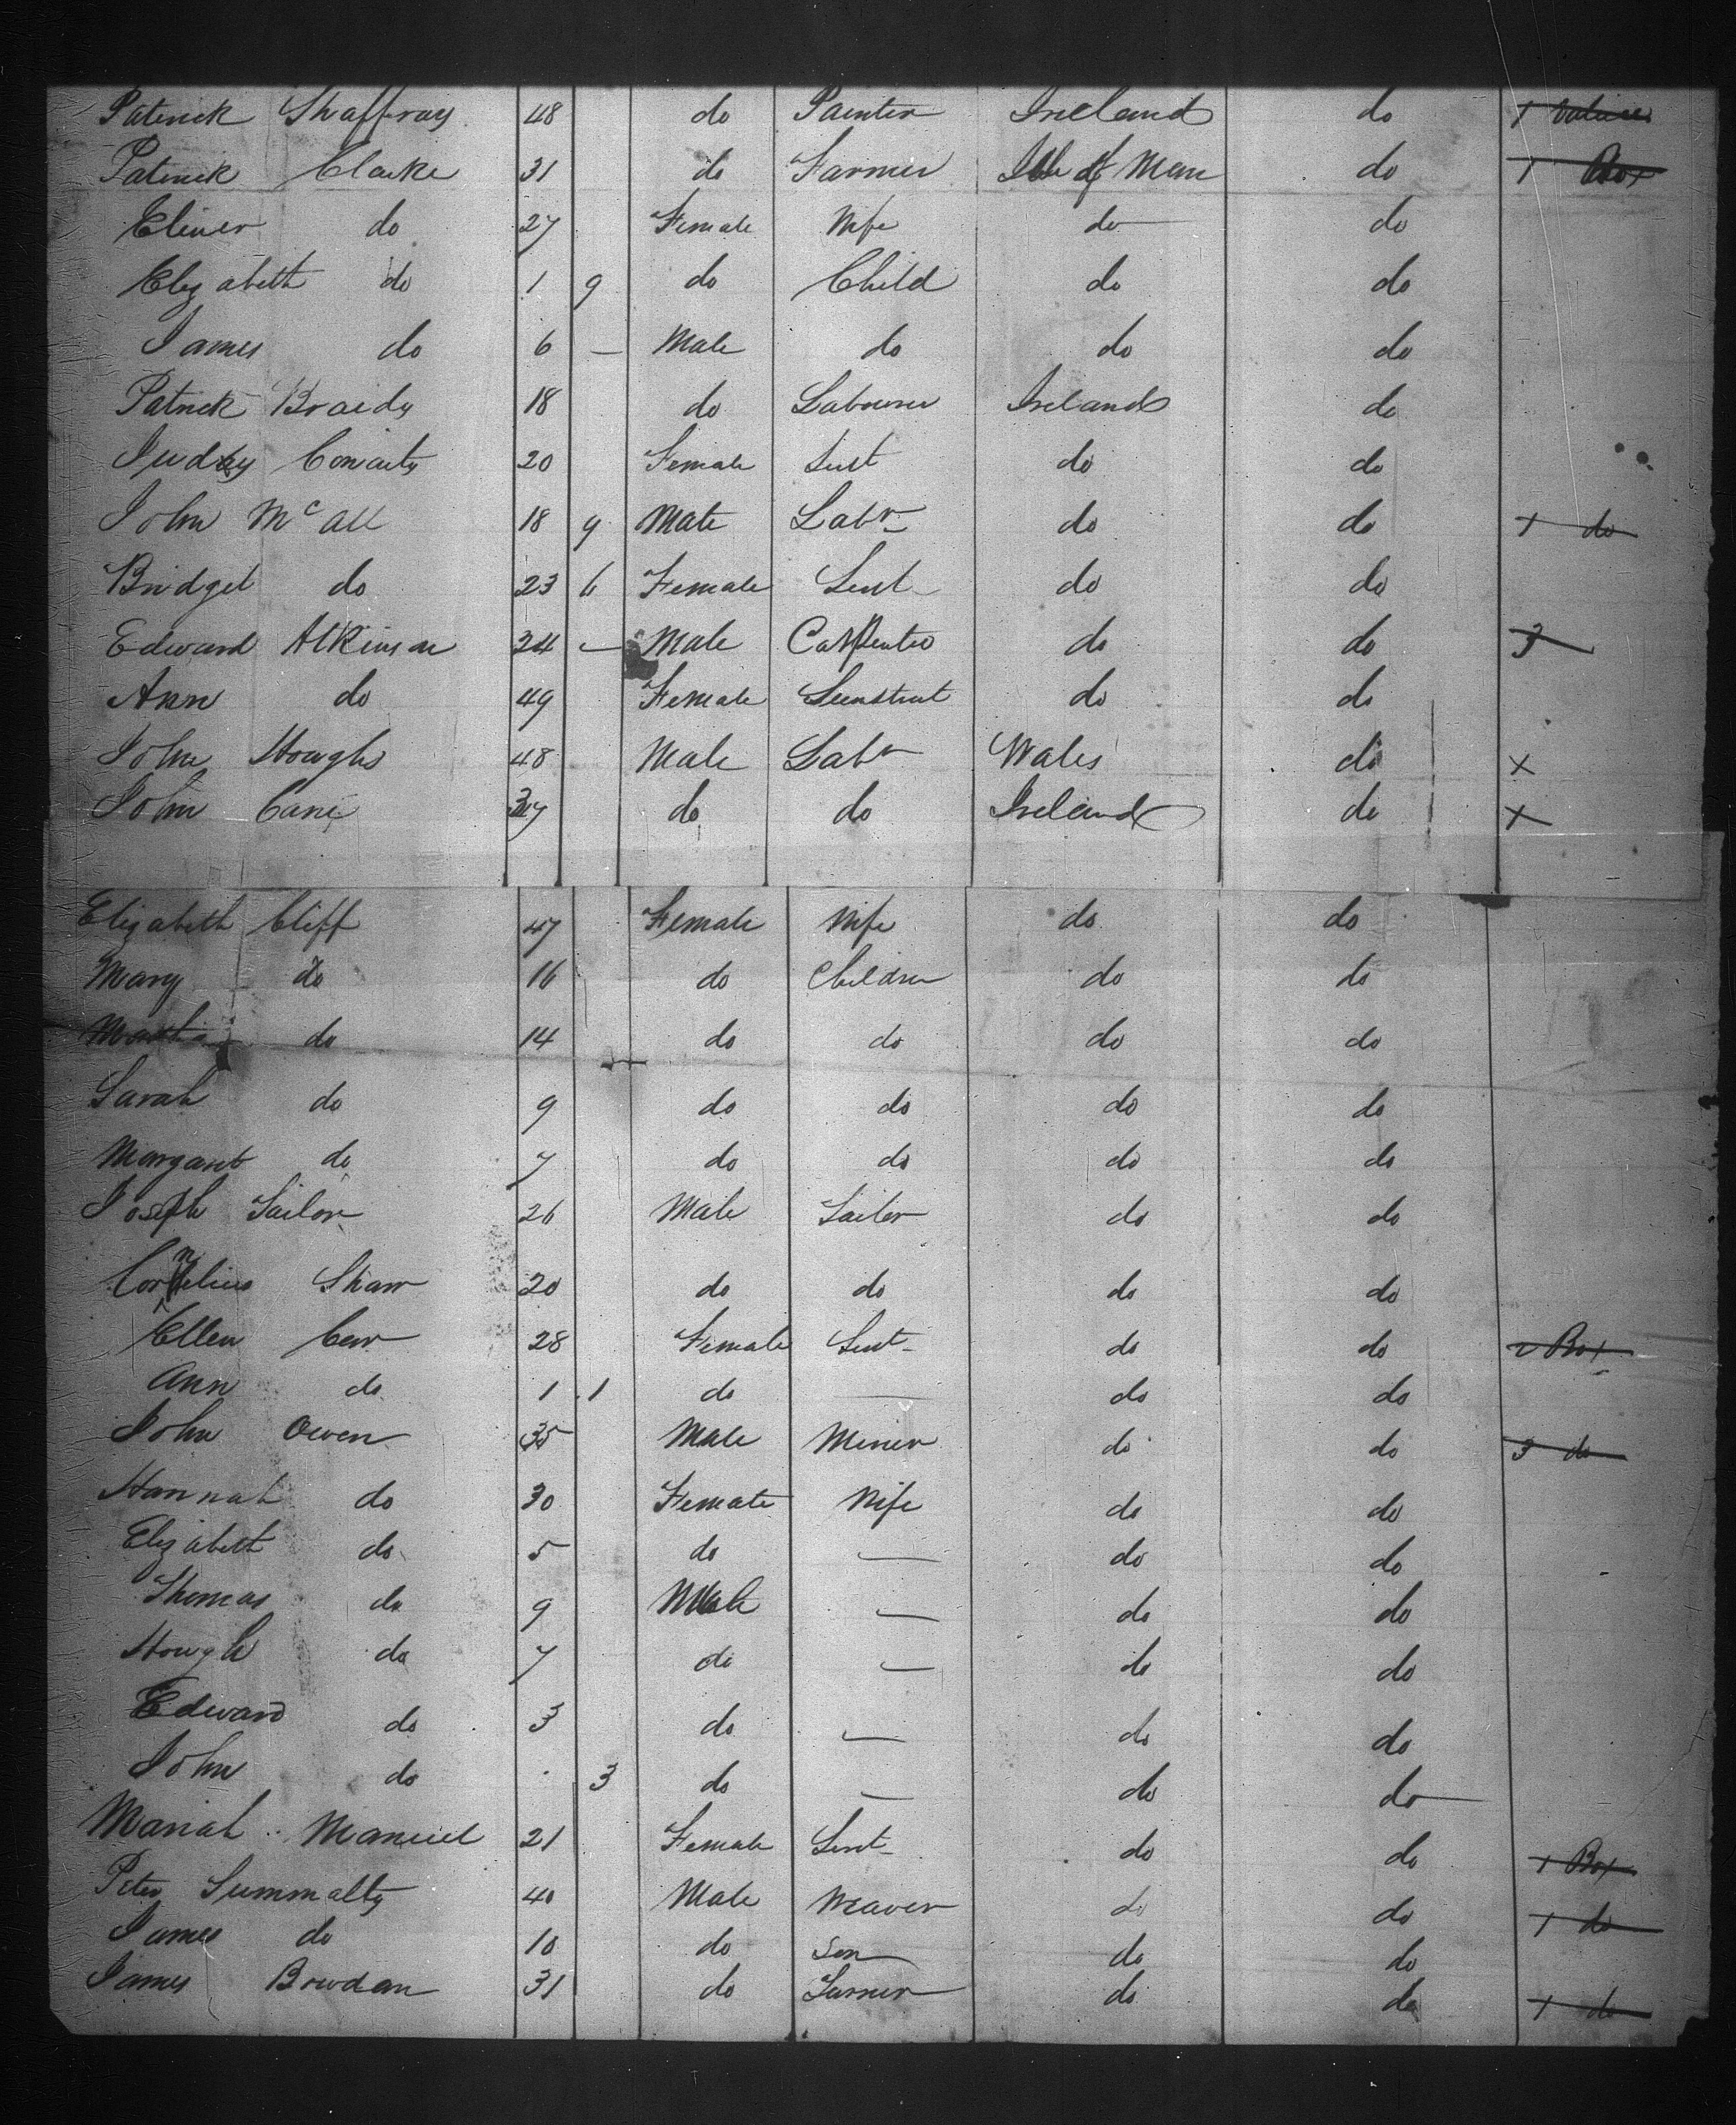 Patrick Shaffray 48 do Painter Ireland do 1 valise
Patrick Clarke 31 do Farmer Isle of Man do 1 Box
Eliner do 27 Female Wife do do
Elizabeth do 1 9 do Child do do
James do 6 — Male do do do
Patrick Braidy 18 do Labourer Ireland do
Judey Conarty 20 Female Sert do do
John Mc all 18 9 Male Labr do do 1 do
Bridget do 23 6 Female Sert do do
Edward Atkinson 24 — Male Carpenter do do 3
Ann do 49 Female do do
John Houghs 48 Male Labr Wales do x
John Cane do do Ireland do x
Elizabeth Cliff 47 Female Wife do do
Mary do 16 do Children do do
Martha do 14 do do do do
Sarah do 9 do do do do
Margaret do 7 do do do do
Joseph Tailor 26 Male Tailor do do
Cornelius Shaw 20 do do do do
Ellen Carr 28 Female Sert do do 2 Box
Ann do 1 1 do — do do
John Owen 35 Male Miner do do 3 do
Hannah do 30 Female Wife do do
Elizabeth do 5 do — do do
Thomas do 9 Male — do do
Hough do 7 do — do do
Edward do 3 do — do do
John do 3 do — do do
Mariah Manuel 21 Female Sert do do 1 Box
Peter Summalty 40 Male Weaver do do 1 do
James do 10 do Son do do
James Bowdan 31 do Turner do do 1 do